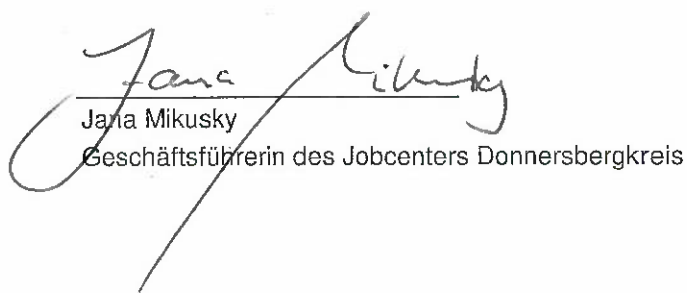 Jana Mikusky
Jana Mikusky
Geschäftsführerin des Jobcenters Donnersbergkreis